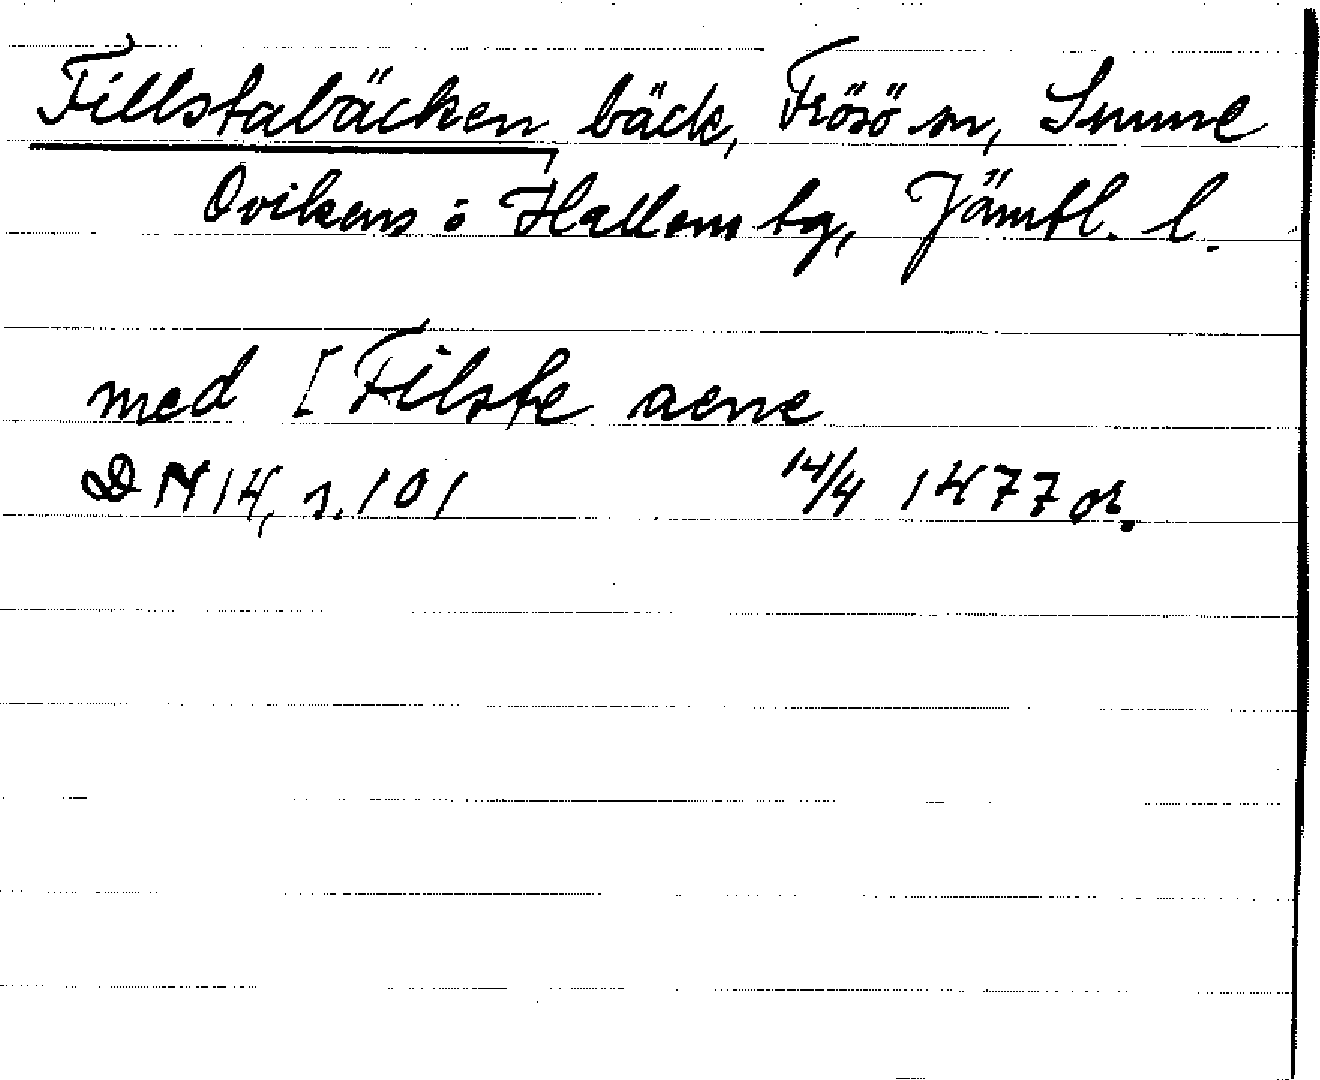 Fillstabäcken, bäck, Frösö sn, Sunne
Ovikens o Hallens tg, Jämtl. l.
med [Filste aene
DN 14, s. 101 14/4 1477 or.